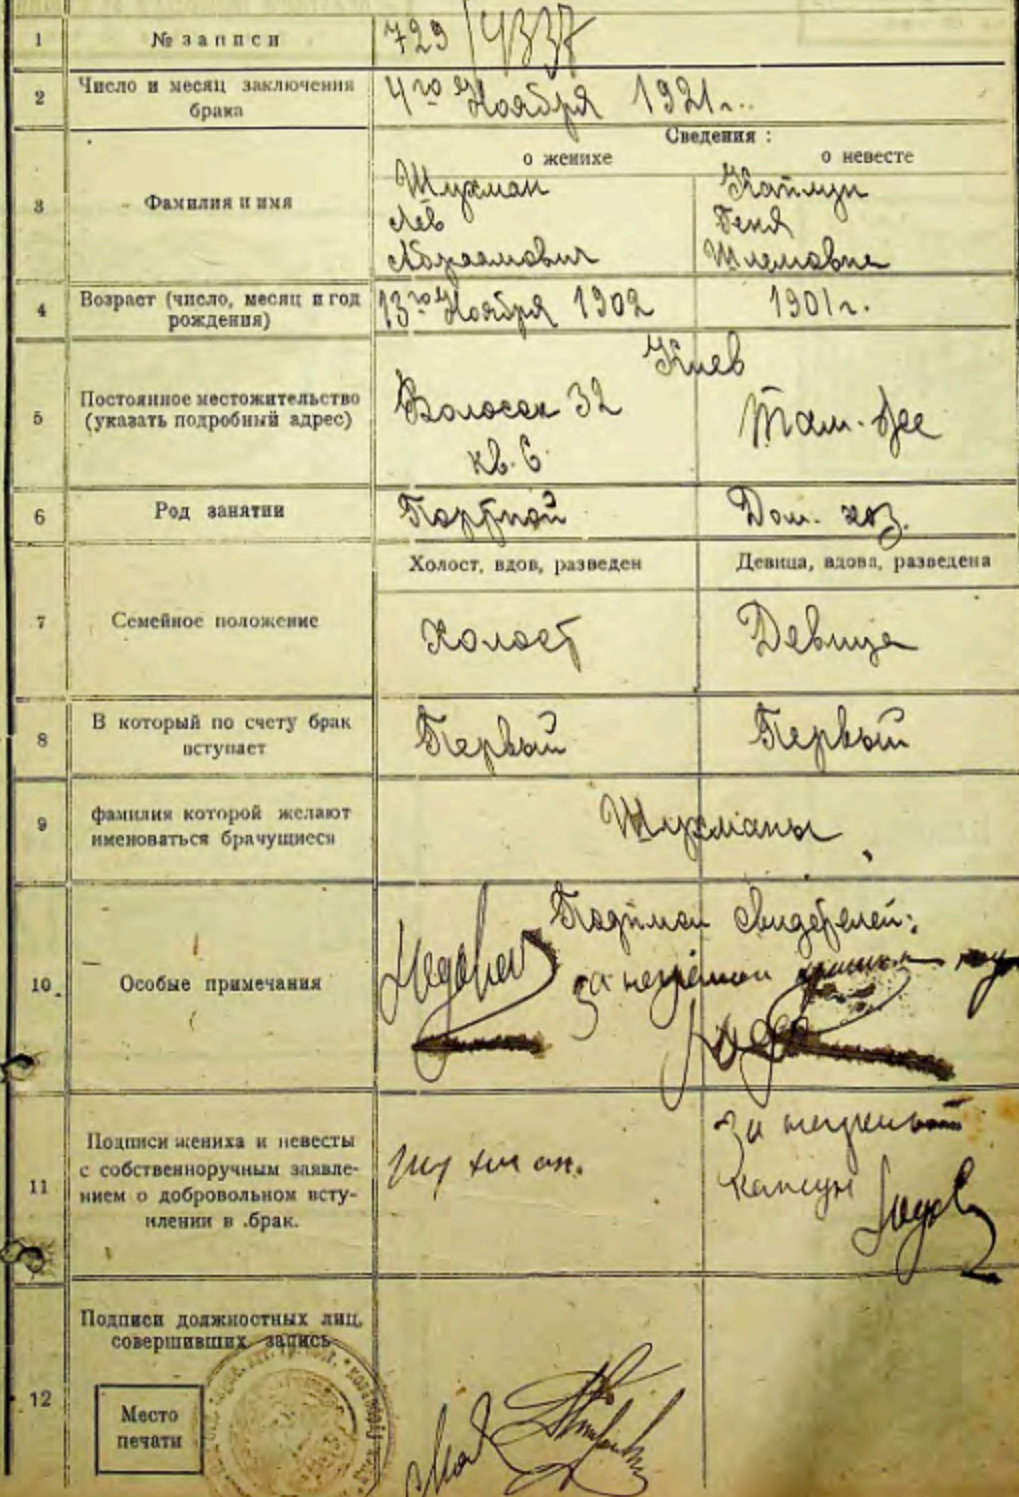 1 № записи 729/4337
2 Число и месяц заключения брака 4го Ноября 1921 г.
Сведения:
о женихе о невесте
3 Фамилия и имя
Шухман
Лев
Абрамович
Каплун
Геня
Шлемовна
4 Возраст (число, месяц и год рождения) 13го Ноября 1902 1901 г.
Киев
5 Постоянное местожительство
(указать подробный адрес)
32
кв. 6
Там-же
6 Род занятии Портной Дом. хоз.
Холост, вдов, разведен Девица, вдова, разведена
7 Семейное положение Холост Девица
8 В который по счету брак
вступает Первый Первый
9 фамилия которой желают
именоваться брачущиеся Шухманы
10 Особые примечания
свидетелей:
за неграмотн
11 Подписи жениха и невесты
с собственноручным заявле-
нием о добровольном всту-
плении в брак.
Шухман.
За неграмотн
Каплун
12 Подписи должностных лиц,
совершивших запись
Место
печати